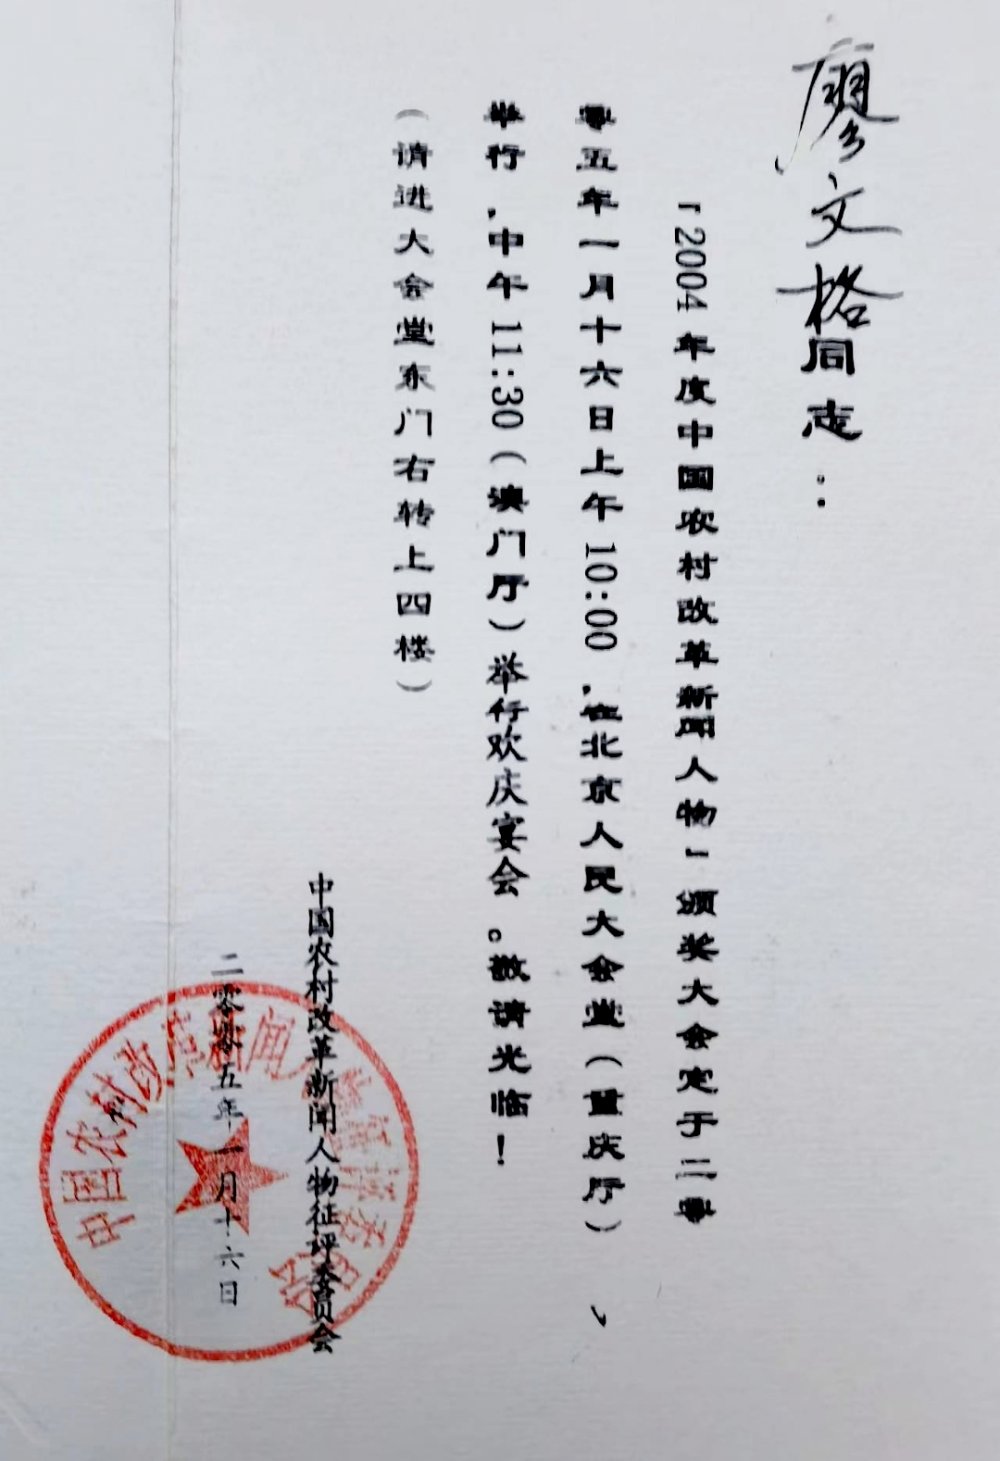 廖文格同志：
「2004年度中国农村改革新闻人物」颁奖大会定于二零
零五年一月十六日上午10:00，在北京人民大会堂（重庆厅）、
举行，中午11:30（澳门厅）举行欢庆宴会。敬请光临！
（请进大会堂东门右转上四楼）
中国农村改革新闻人物征评委员会
二零零五年一月十六日
中国农村改革新闻人物征评委员会